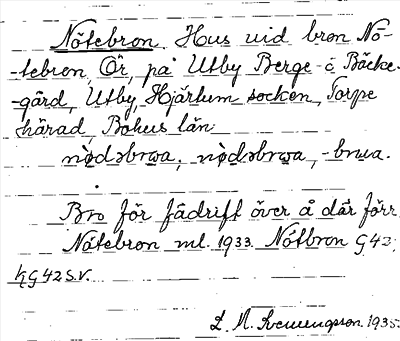 Nötebron. Hus vid bron Nö-
-tebron, Ör, på Utby Berge- o Bäcke-
-gård, Utby, Hjärtum socken, Torpe
härad, Bohus län.
nødəbrωa, nødəbrωa, -brωa.
Bro för fädrift över å där förr
Nötebron ml. 1933. Nötbron G 42;
kG 42 s.v.
1935.